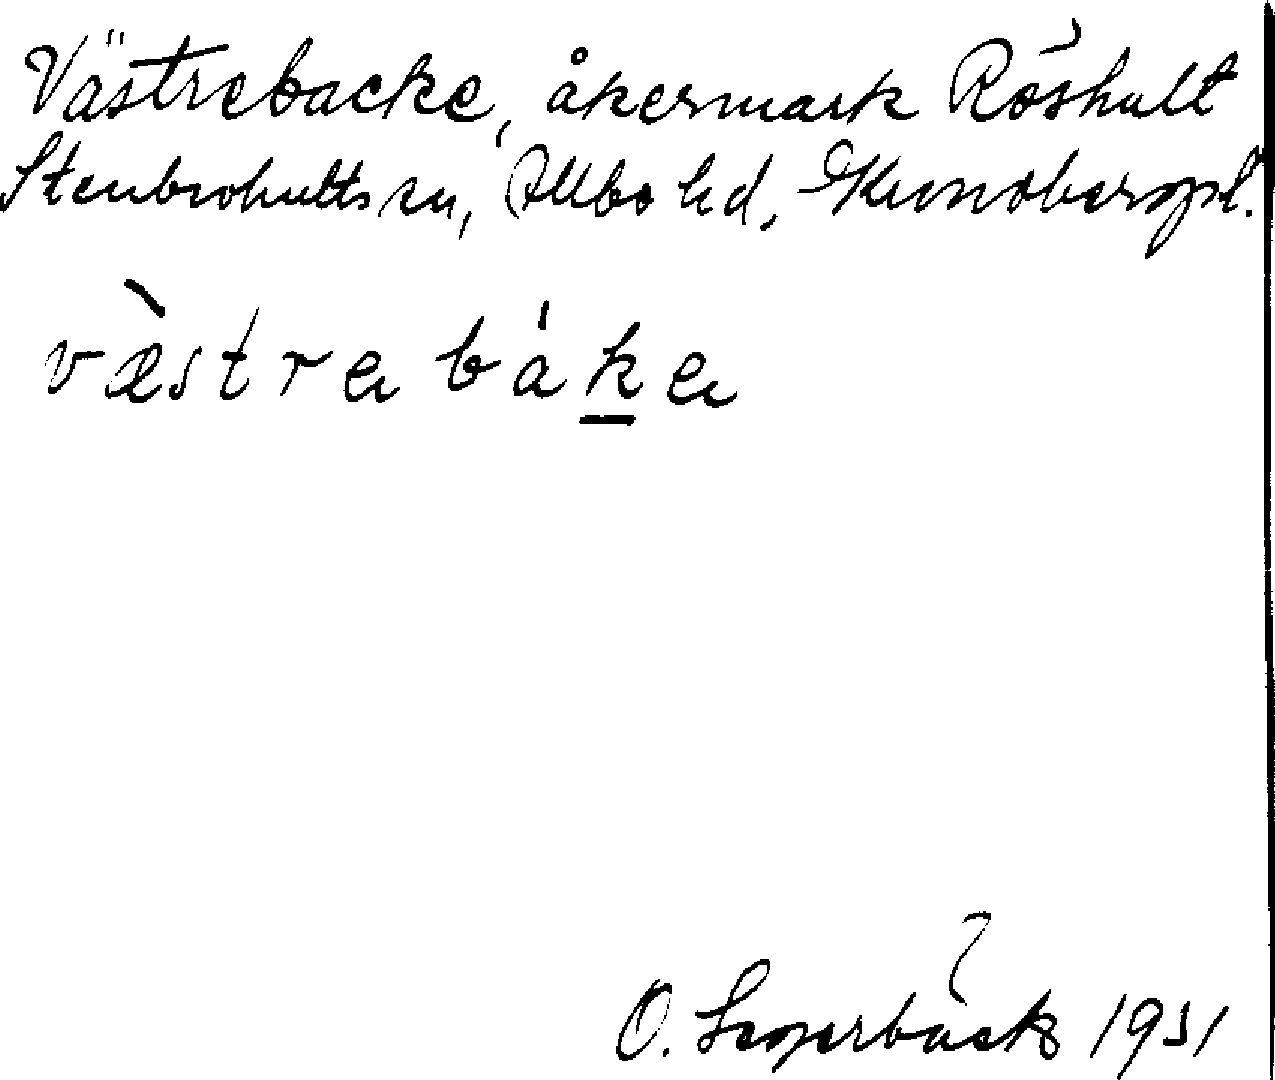 Västrebacke, åkermark Röshult
Stenbrohults sn, Allbo hd, Kronobergs l.
væ̀strə båkə
O. Lagerbäck 1931